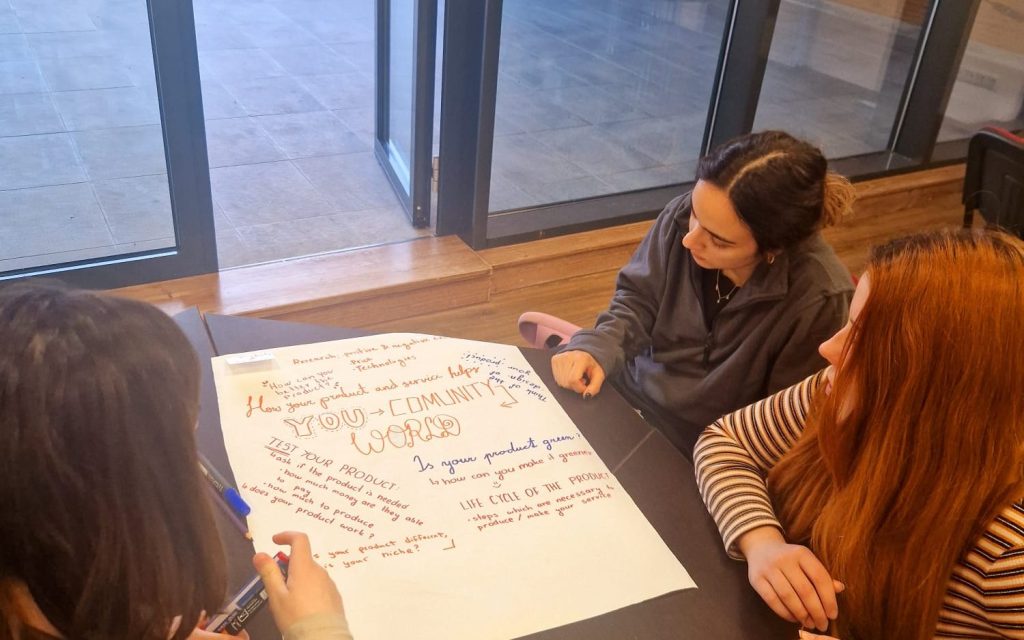 Research, positive & negative
Technologies
"How can you
better the
product?"
How your product and service helps
YOU → COMUNITY
WORLD
Think of
the
design of
your
product!
TEST YOUR PRODUCT
↳ ask if the product is needed
· how much money are they able
to pay
· how much to produce
↳ does your product work?
is your product different,
is your niche?
Is your product green?
↳ how can you make it greener
LIFE CYCLE OF THE PRODUCT
· steps which are necessary to
produce / make your service